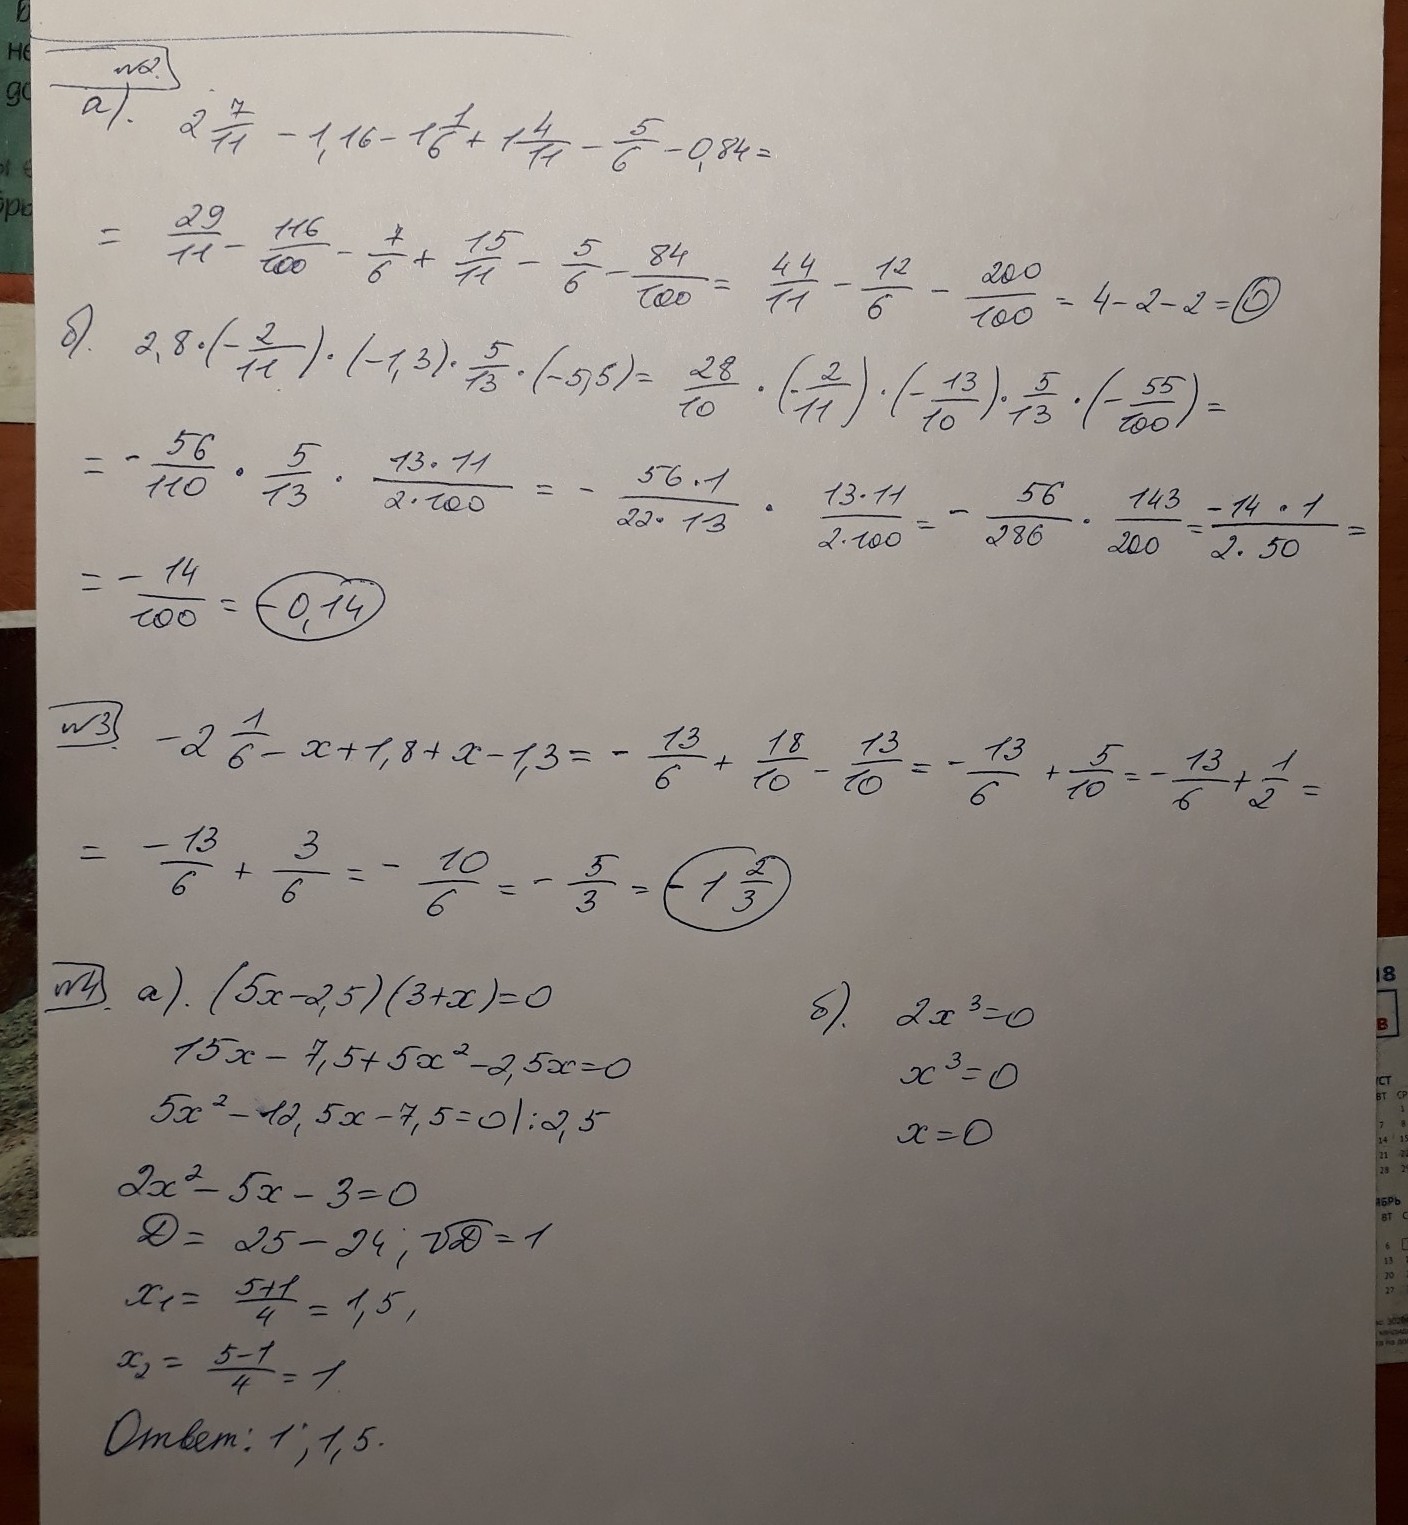 №2.
а). 2 7/11 - 1,16 - 1 1/6 + 1 4/11 - 5/6 - 0,84 =
= 29/11 - 116/100 - 7/6 + 15/11 - 5/6 - 84/100 = 44/11 - 12/6 - 200/100 = 4 - 2 - 2 = 0
б). 2,8 · (-2/11) · (-1,3) · 5/13 · (-5,5) = 28/10 · (-2/11) · (-13/10) · 5/13 · (-55/100) =
= - 56/110 · 5/13 · 13·11/2·100 = - 56·1/22·13 · 13·11/2·100 = - 56/286 · 143/200 = -14·1/2·50 =
= - 14/100 = -0,14
№3. -2 1/6 - x + 1,8 + x - 1,3 = - 13/6 + 18/10 - 13/10 = - 13/6 + 5/10 = - 13/6 + 1/2 =
= -13/6 + 3/6 = - 10/6 = - 5/3 = -1 2/3
№4. а). (5x - 2,5)(3 + x) = 0
15x - 7,5 + 5x² - 2,5x = 0
5x² - 12,5x - 7,5 = 0 |: 2,5
2x² - 5x - 3 = 0
D = 25 - 24; √D = 1
x₁ = 5+1/4 = 1,5,
x₂ = 5-1/4 = 1
Ответ: 1; 1,5.
б). 2x³ = 0
x³ = 0
x = 0
не
до
18
В
УСТ
ВТ СР
7 8
14 15
21
28
ЯБРЬ
ВТ С
6
13
20
27